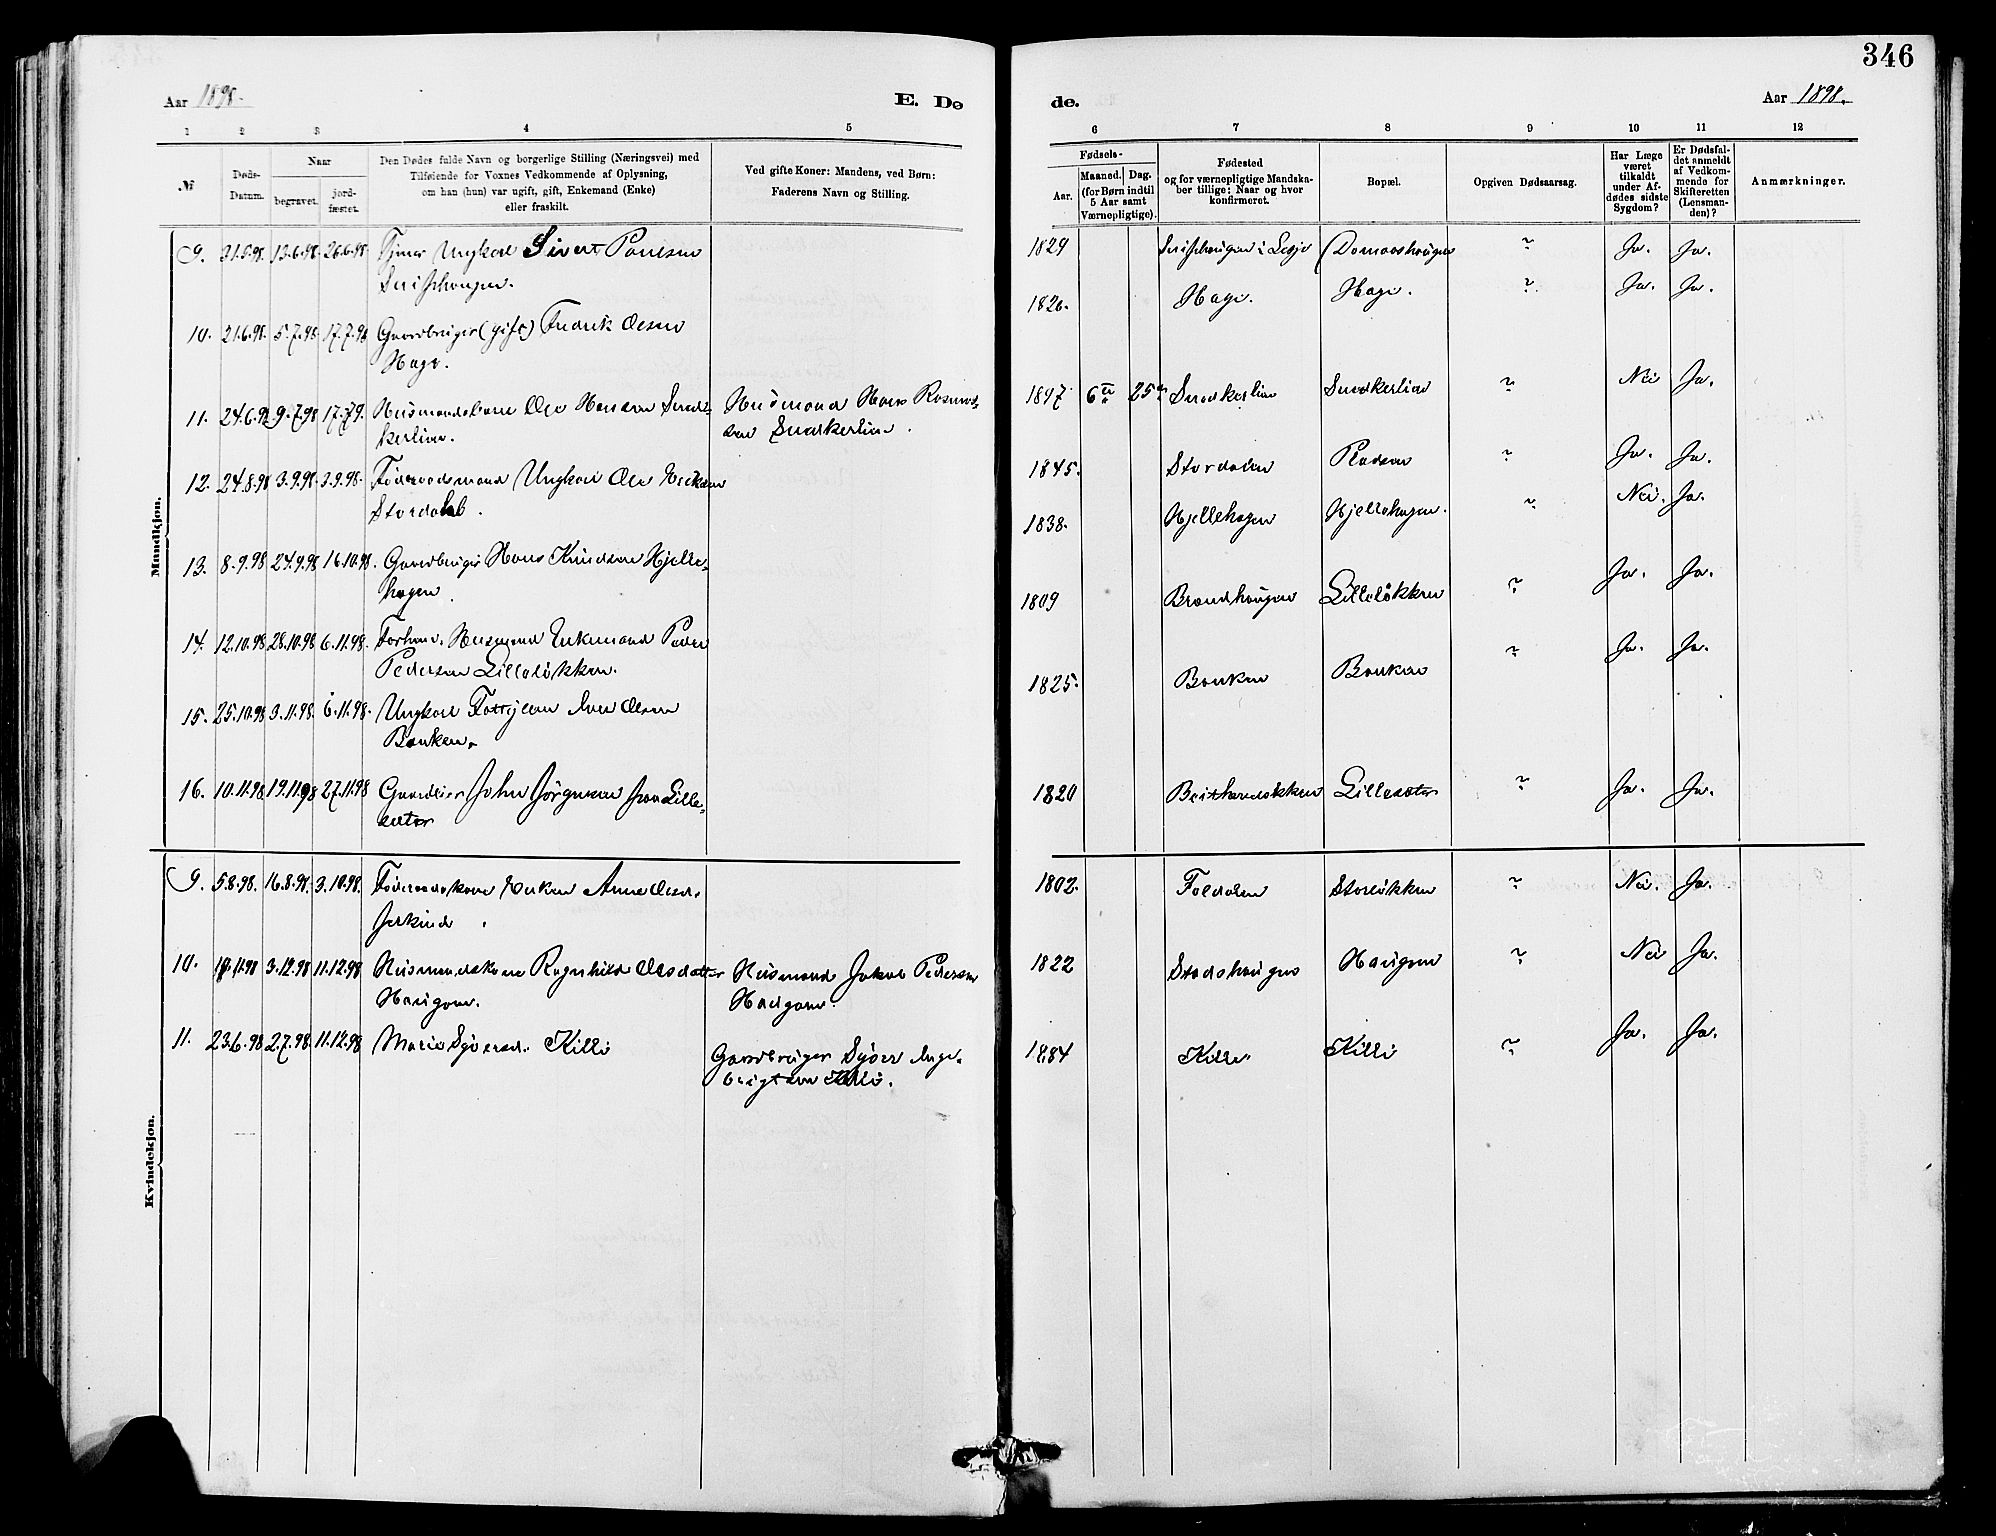 346
Aar 1898.
E. Dø
de.
Aar 1898.
1 2 3 4 5
6 7 8 9 10 11 12
№
Døds-
Datum.
Naar
begravet.
jord-
fæstet.
Den Dødes fulde Navn og borgerlige Stilling (Næringsvei) med
Tilføiende for Voxnes Vedkommende af Oplysning,
om han (hun) var ugift, gift, Enkemand (Enke)
eller fraskilt.
Ved gifte Koner: Mandens, ved Børn:
Faderens Navn og Stilling.
Fødsels-
Aar.
Maaned. Dag.
(for Børn indtil
5 Aar samt
Værnepligtige).
Fødested
og for værnepligtige Mandska-
ber tillige: Naar og hvor
konfirmeret.
Bopæl.
Opgiven Dødsaarsag.
Har Læge
været
tilkaldt
under Af-
dødes sidste
Sygdom?
Er Dødsfal-
det anmeldt
af Vedkom-
mende for
Skifteretten
(Lensman-
den)?
Anmærkninger.
Mandkjøn.
9. 31.5.98. 13.6.98. 26.6.98. Tjener Ungkarl Sivert Paulsen
1829 i Lesje ? Ja. Ja.
10. 21.6.98. 5.7.98. 17.7.98 Gaardbruger (gift) Fredrik Olsen
Hage.
1826. Hage. Hage. ? Ja. Ja.
11. 24.6.98 9.7.98 17.7.9. Husmandsbarn Ole Hansen Sned-
kerlien.
Husmand Hans Rasmus-
sen Snedkerlien.
1897 6te 25de Snedkerlien Snedkerlien ? Nei Ja.
12. 24.8.98 3.9.98. 3.9.98. Føderaadsmand Ungkarl Ole Eriksen
Stordal.
1845. Stordalen ? Ja. Ja.
13. 8.9.98 24.9.98 16.10.98. Gaardbruger Hans Knudsen Hjelle-
hagen.
1838. Hjellehagen Hjellehagen. ? Nei. Ja.
14. 12.10.98 28.10.98 6.11.98. Forhenv. Husmand Enkemand Peder
Pedersen Lilleløkken.
1809 Brandhaugen Lilleløkken ? Ja. Ja.
15. 25.10.98 3.11.98. 6.11.98. Ungkarl Iver Olsen
Bauken.
1825. Bauken Bauken ? Ja. Ja.
16. 10.11.98. 19.11.98 27.11.98 Gaardeier John Jørgensen fra Lille-
sæter
1820 Lillesæter ? Ja. Ja.
Kvindekjøn.
9. 5.8.98. 16.8.98. 3.10.98. Føderaadskone Enken Anne Olsd.
Jerkind.
1802. Foldalen Storløkken ? Nei. Ja.
10. 3.12.98 11.12.98 Husmandskone Ragnhild Olsdatter
Haugen.
Husmand Jakob Pedersen
Haugen.
1822 Stadshaugen Haugen ? Nei Ja.
11. 23.6.98 2.7.98. 11.12.98 Marie Syversd. Killi
Gaardbruger Syver Inge-
brigtsen Killi.
1884 Killi Killi ? Ja. Ja.